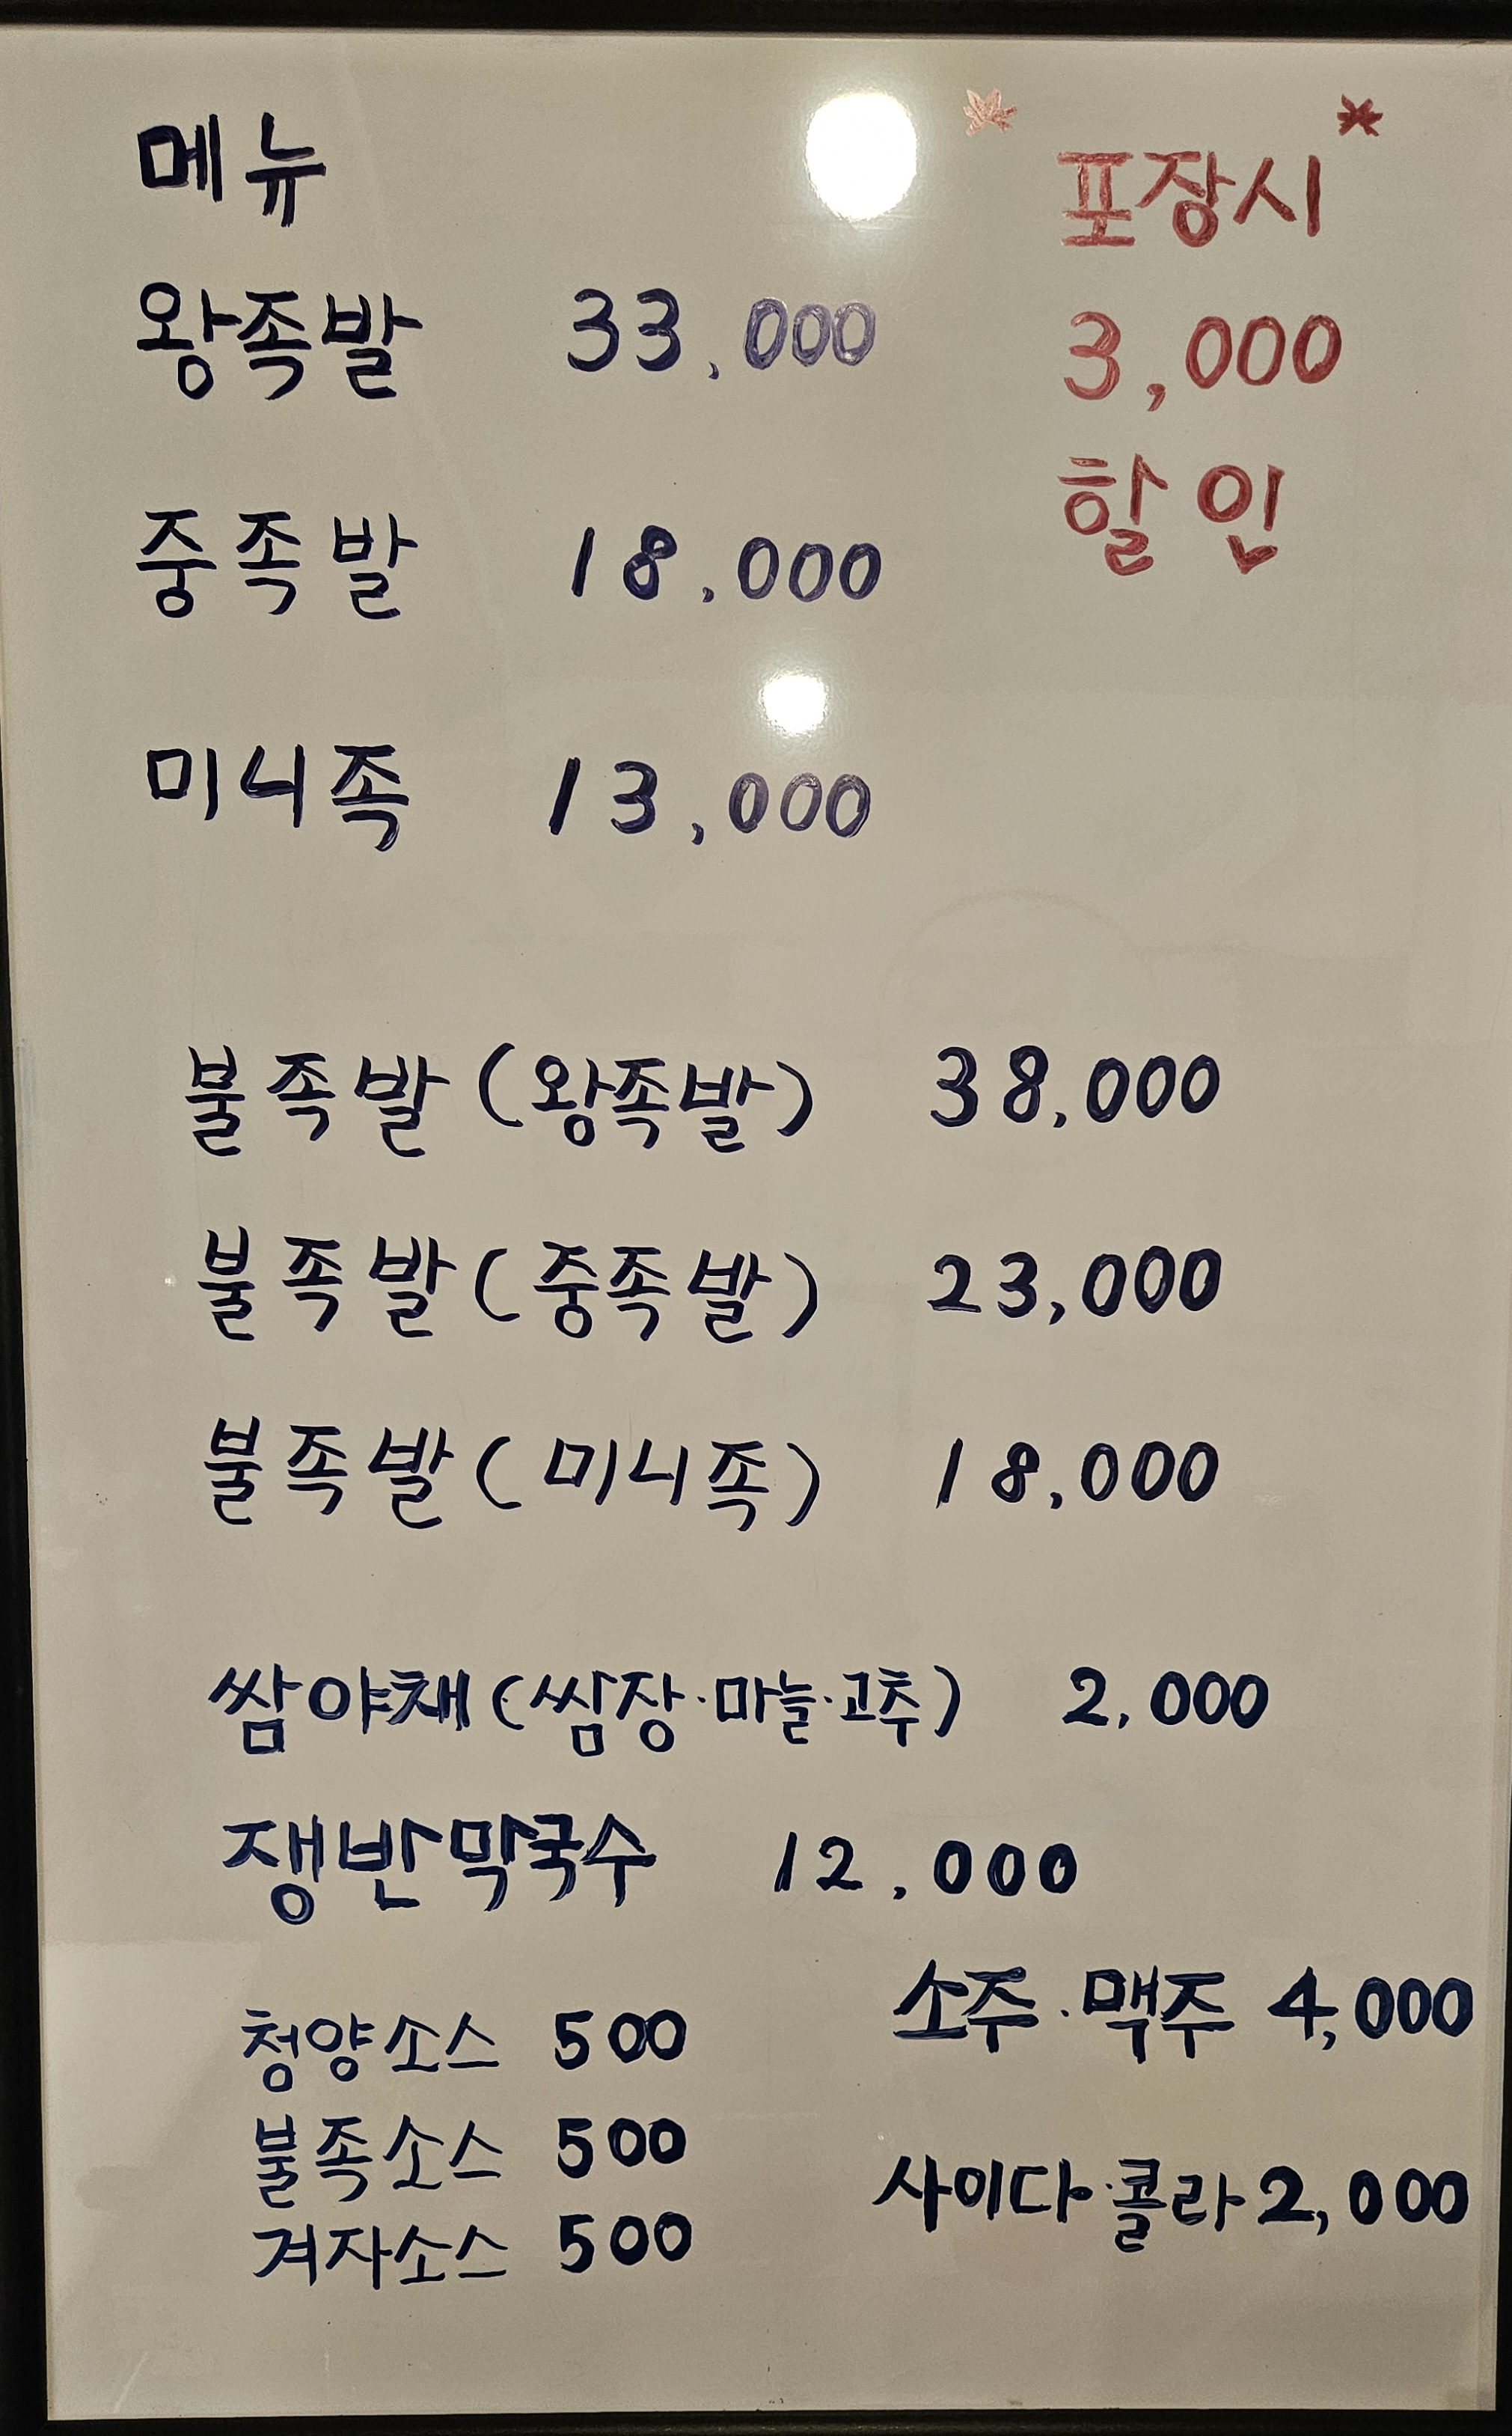 메뉴
* 포장시 *
3,000
할인
왕족발 33,000
중족발 18,000
미니족 13,000
불족발(왕족발) 38,000
불족발(중족발) 23,000
불족발(미니족) 18,000
쌈야채(쌈장·마늘·고추) 2,000
쟁반막국수 12,000
청양소스 500
불족소스 500
겨자소스 500
소주·맥주 4,000
사이다·콜라 2,000